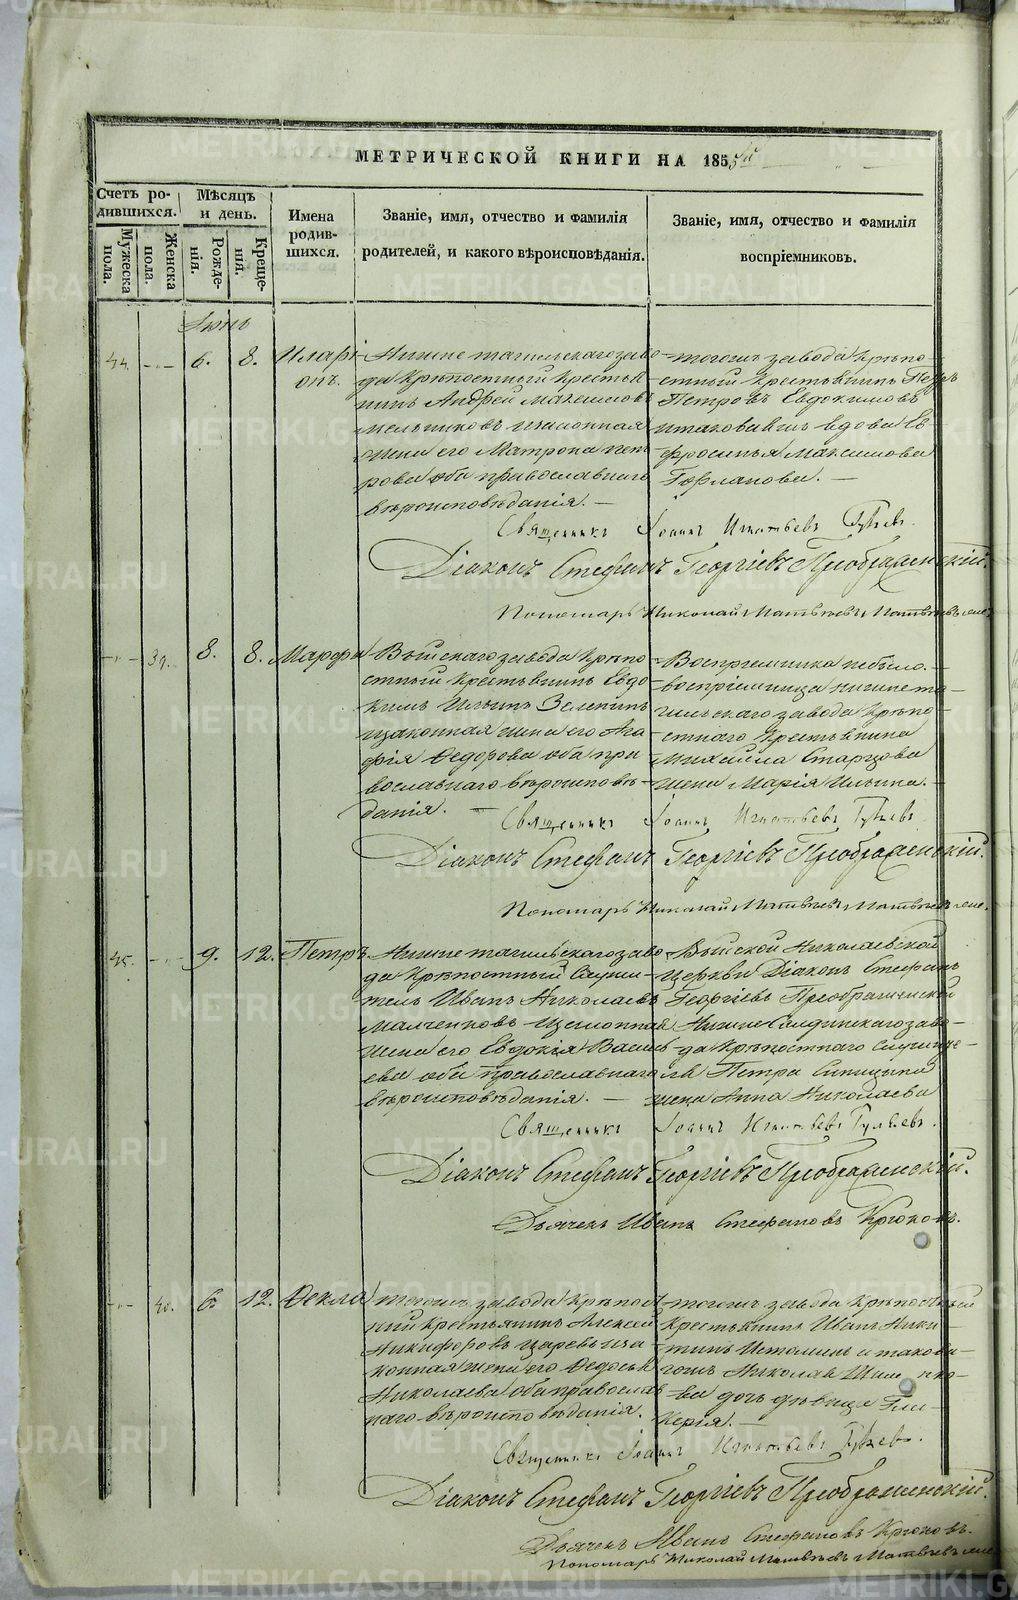 МЕТРИЧЕСКОЙ КНИГИ НА 1855й
Счетъ ро-
дившихся.
Мужеска
пола.
Женска
пола.
Мѣсяцъ
и день.
Рожде-
нія.
Креще-
нія.
Имена
родив-
шихся.
Званіе, имя, отчество и фамилія
родителей, и какого вѣроисповѣданія.
Званіе, имя, отчество и фамилія
воспріемниковъ.
Іюнь
44. 6. 8. Иларі-
онъ.
Нижне тагильскаго заво-
да Крѣпостный Крестья
нинъ Андрей Максимовъ
Мельниковъ изаконная
жена его Матрона пет
рова оба православнаго
вѣроисповѣданія. —
тогожъ завода Крѣпо-
стный Крестьянинъ Петръ
Петровъ Евдокимовъ
итаковаяжъ вдова Ев
фросинья Максимова
Священникъ Іоаннъ Игнатьевъ Гуляевъ.
Діаконъ Стефанъ Георгіевъ Преображенскій.
Пономарь Николай Матвѣевъ
39. 8. 8. Марфа
Выйскаго завода Крѣпо
стный Крестьянинъ Евдо
кимъ Ильинъ Зеленинъ
изаконная жена его Ага
фія Федорова оба пра
вославнаго вѣроисповѣ-
данія. —
Воспріемника небыло. —
воспріемница нижнета-
гильскаго завода Крѣпо-
стнаго Крестьянина
Михайла Старцова
жена Марія Ильина. —
Священникъ Іоаннъ Игнатьевъ Гуляевъ
Діаконъ Стефанъ Георгіевъ Преображенскій.
Пономарь Николай Матвѣевъ
45. 9. 12. Петръ.
Нижне тагильскаго заво
да Крѣпостный Служи-
тель Иванъ Николаевъ
Малченковъ изаконная
жена его Евдокія Василь
ева оба православнаго
вѣроисповѣданія. —
Выйской Николаевской
церкви Діаконъ Стефанъ
Георгіевъ Преображенской
Нижне Салдинскаго заво-
да Крѣпостнаго Служите-
ля Петра Синицына
жена Анна Николаева
Священникъ Іоаннъ Игнатьевъ Гуляевъ.
Діаконъ Стефанъ Георгіевъ Преображенскій.
Дьячекъ Иванъ Стефановъ Крюковъ.
40. 6. 12. Фекла
тогожъ завода Крѣпост
ный Крестьянинъ Алексей
Никифоровъ Царевъ иза
конная жена его Федосья
Николаева оба православ
наго вѣроисповѣданія.
тогожъ завода Крѣпостный
Крестьянинъ Иванъ Ники-
тинъ Истоминъ и таково-
гожъ Николая
ва дочь дѣвица Гли-
керія. —
Священникъ Іоаннъ Игнатьевъ Гуляевъ.
Діаконъ Стефанъ Георгіевъ Преображенскій.
Дьячекъ Иванъ Стефановъ Крюковъ.
Пономарь Николай Матвѣевъ
METRIKI.GASO-URAL.RU